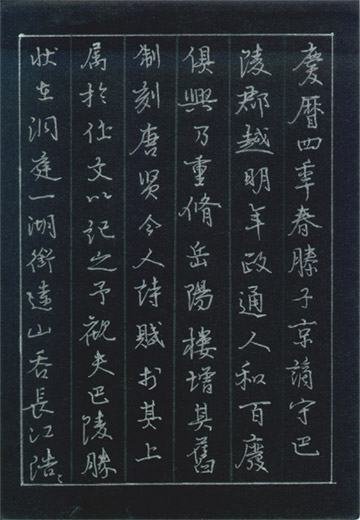 慶曆四秊春滕子京謫守巴
陵郡越明年政通人和百廢
俱興乃重脩岳陽樓增其舊
制刻唐贤今人詩賦於其上
属於作文以記之予觀夫巴陵勝
状在洞庭一湖銜遠山吞長江浩〻